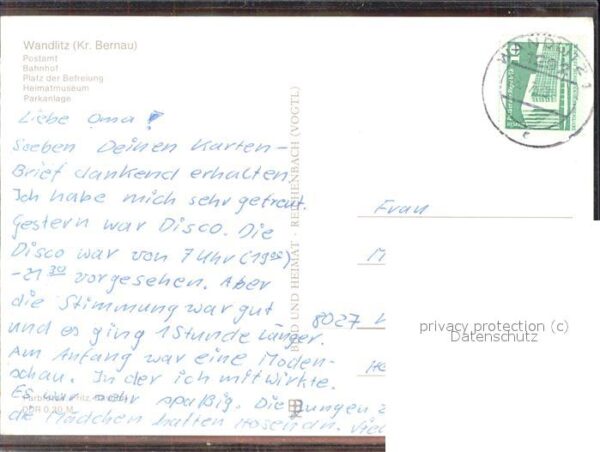 Wandlitz (Kr. Bernau)
Postamt
Bahnhof
Platz der Befreiung
Heimatmuseum
Parkanlage
Liebe Oma!
Soeben Deinen Karten-
Brief dankend erhalten.
Ich habe mich sehr gefreut.
Gestern war Disco. Die
Disco war von 7 Uhr (19 00)
-21 30 vorgesehen. Aber
die Stimmung war gut
und es ging 1 Stunde länger.
Am Anfang war eine Moden-
schau. In der ich mitwirkte.
Es war sehr spaßig. Die Jungen
die Mädchen hatten Hosen an.
DDR 0,20 M
BILD UND HEIMAT REICHENBACH (VOGTL)
WANDLITZ 1
10
Frau
M
8027
privacy protection (c)
Datenschutz